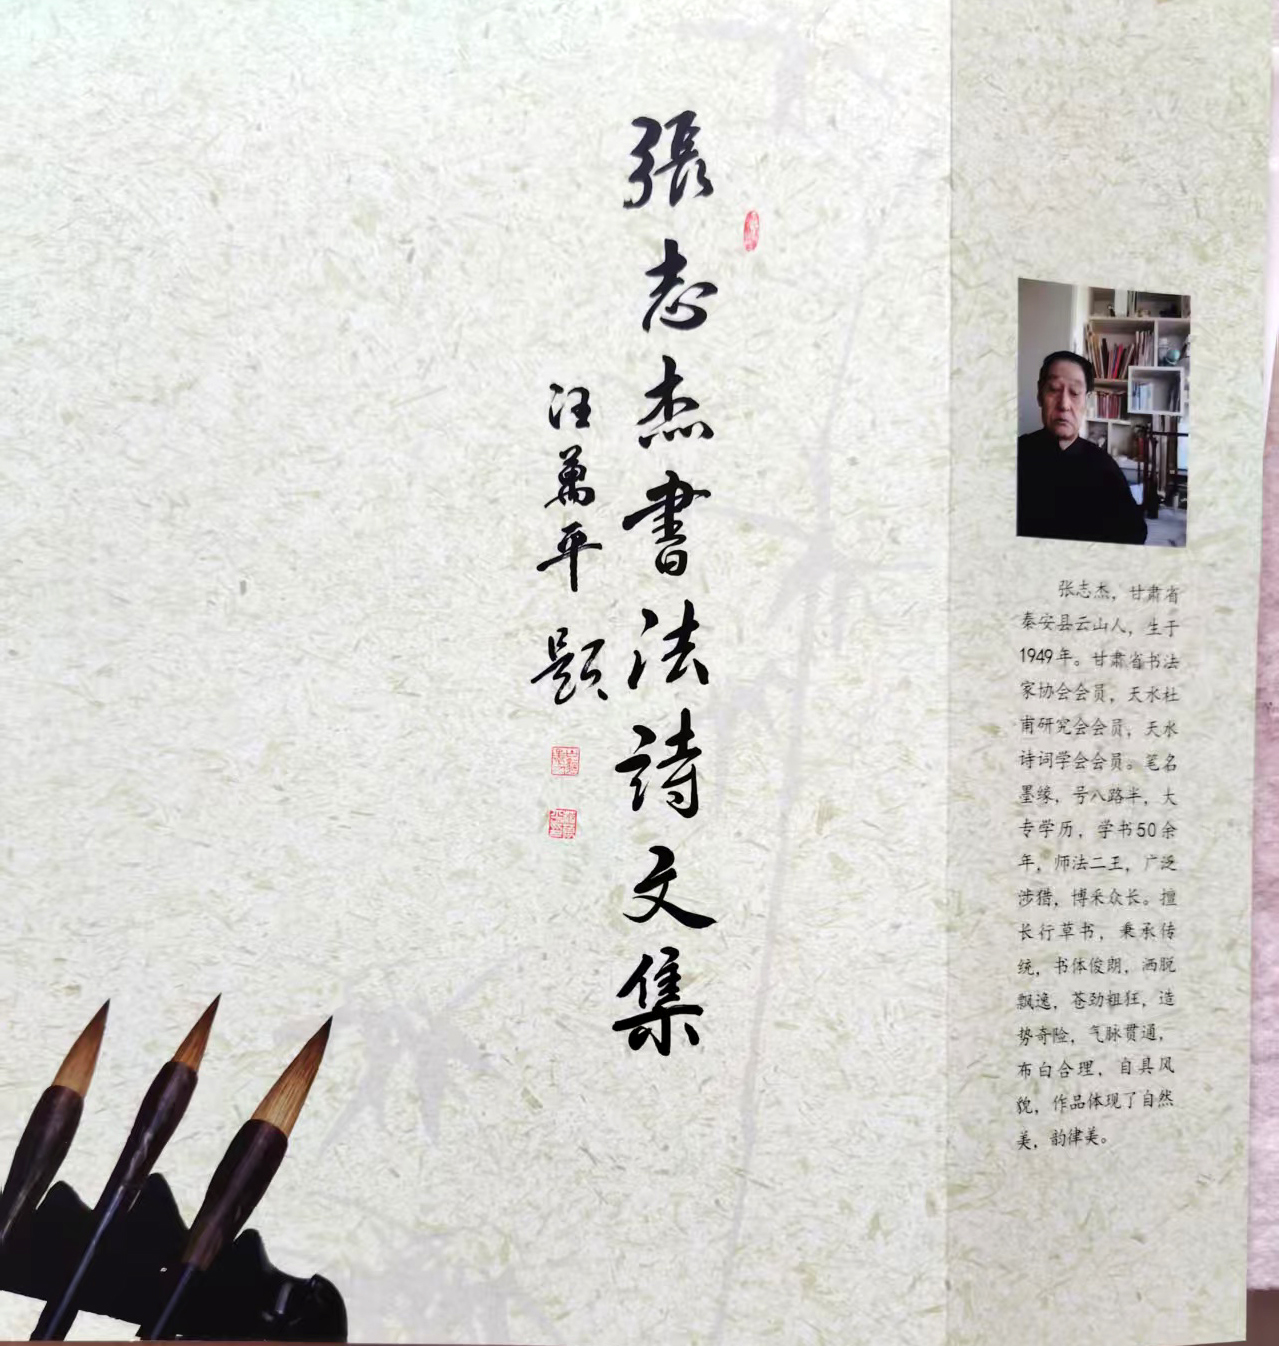 張志杰書法詩文集
汪萬平題
张志杰，甘肃省
秦安县云山人，生于
1949年。甘肃省书法
家协会会员，天水杜
甫研究会会员，天水
诗词学会会员。笔名
墨缘，号八路半，大
专学历，学书50余
年，师法二王，广泛
涉猎，博采众长。擅
长行草书，秉承传
统，书体俊朗，洒脱
飘逸，苍劲粗狂，造
势奇险，气脉贯通，
布白合理，自具风
貌，作品体现了自然
美，韵律美。